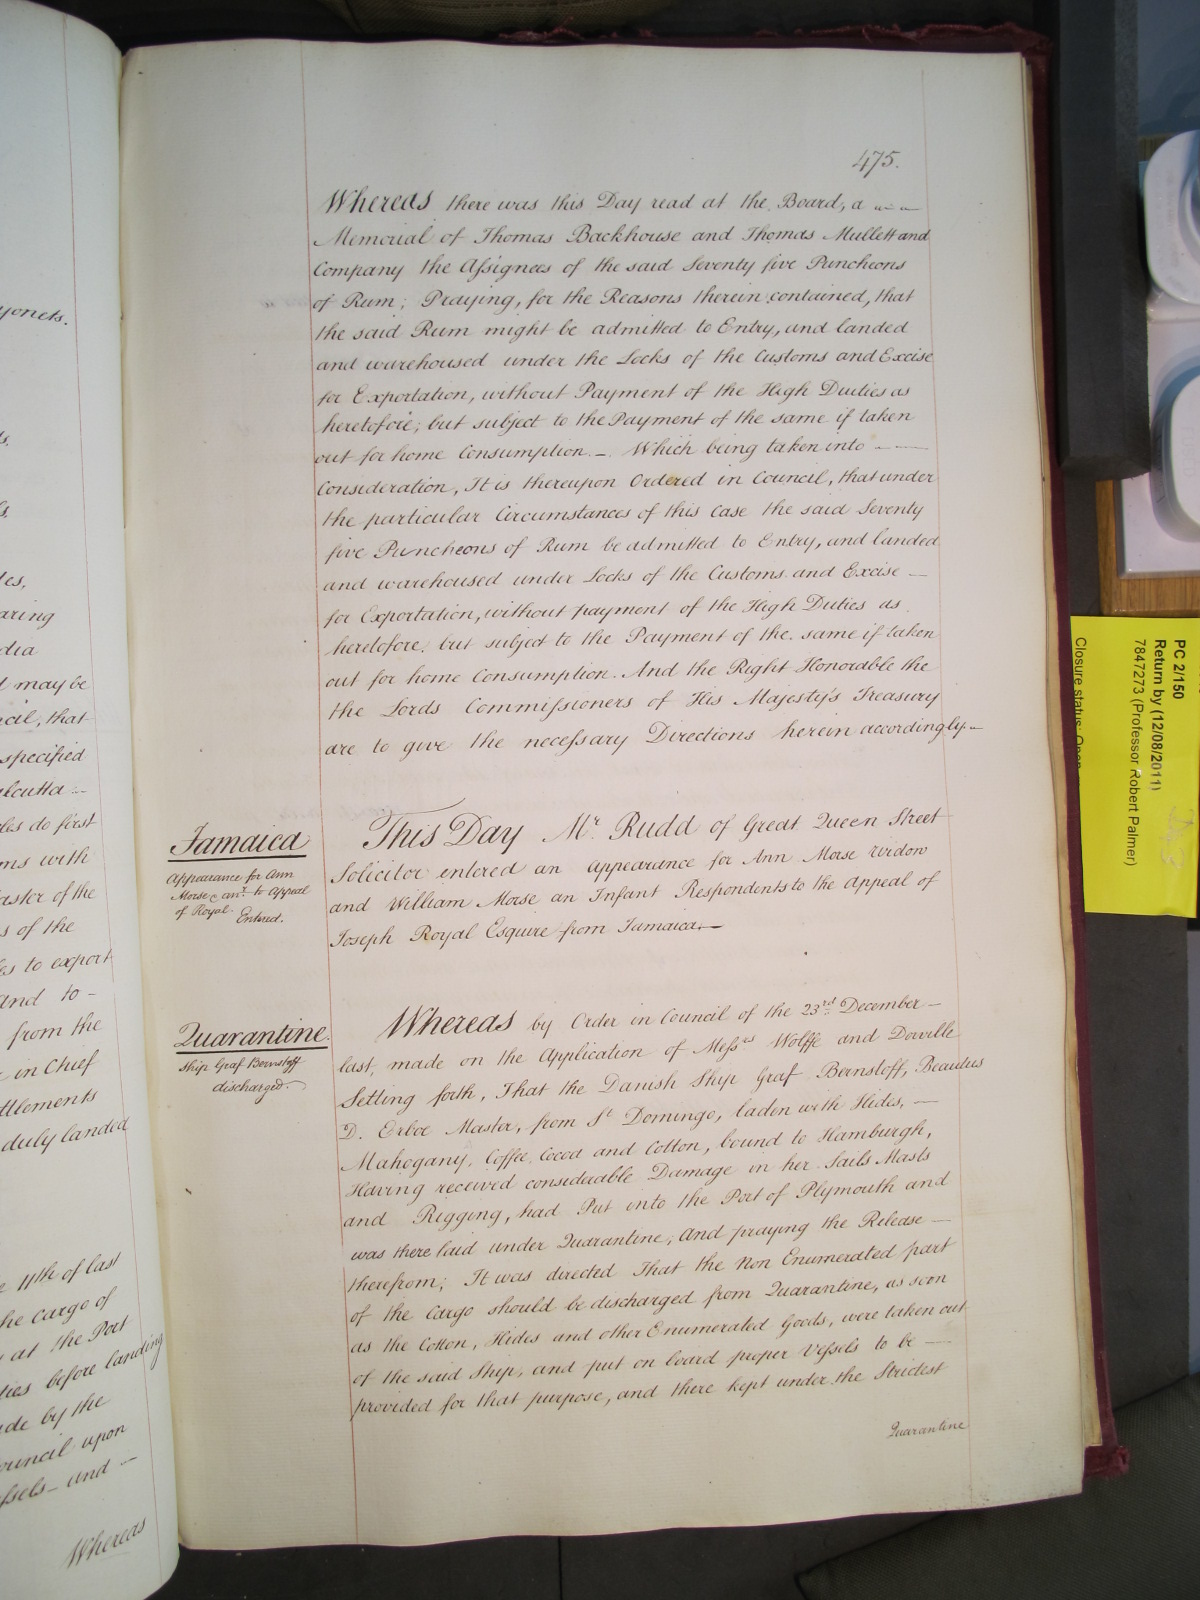 yonets.
aring
dia
may be
cil, that
specified
lcutta
les do first
ms with
aster of the
s of the
es to export
and to -
from the
in Chief
ttlements
duly landed
11th of last
he cargo of
at the Port
ties before landing
ade by the
ouncil upon
fsels - and -
Whereas
475.
Whereas there was this Day read at the Board, a
Memorial of Thomas Backhouse and Thomas Mullett and
Company the Assignees of the said Seventy five Puncheons
of Rum; Praying, for the Reasons therein contained, that
the said Rum might be admitted to Entry, and landed
and warehoused under the Locks of the Customs and Excise
for Exportation, without Payment of the High Duties as
heretofore; but subject to the Payment of the same if taken
out for home Consumption. - Which being taken into -
Consideration, It is thereupon Ordered in Council, that under
the particular Circumstances of this Case the said Seventy
five Puncheons of Rum be admitted to Entry, and landed
and warehoused under Locks of the Customs and Excise -
for Exportation, without payment of the High Duties as
heretofore, but subject to the Payment of the same if taken
out for home Consumption. And the Right Honorable the
the Lords Commissioners of His Majesty's Treasury
are to give the necessary Directions herein accordingly -
Jamaica
Appearance for Ann
Morse & anr. to Appeal
of Royal.
Entered.
This Day Mr. Rudd of Great Queen Street
Solicitor entered an Appearance for Ann Morse Widow
and William Morse an Infant Respondents to the Appeal of
Joseph Royal Esquire from Jamaica. -
Quarantine.
Ship Graf Bernstoff
discharged.
Whereas by Order in Council of the 23rd. December -
last, made on the Application of Messrs Wolffe and Dorville
Setting forth, That the Danish Ship Graf Bernstoff,
D. Erboe Master, from St Domingo, laden with Hides, -
Mahogany, Coffee, Cocoa and Cotton, bound to Hamburgh,
Having received considerable Damage in her Sails Masts
and Rigging, had Put into the Port of Plymouth and
was there laid under Quarantine; And praying the Release -
therefrom; It was directed That the Non Enumerated part
of the Cargo should be discharged from Quarantine, as soon
as the Cotton, Hides and other Enumerated Goods, were taken out
of the said Ship, and put on board proper Vessels to be -
provided for that purpose, and there kept under the Strictest
Quarantine
PC 2/150
Return by (12/08/2011)
7847273 (Professor Robert Palmer)
Closure status: Open